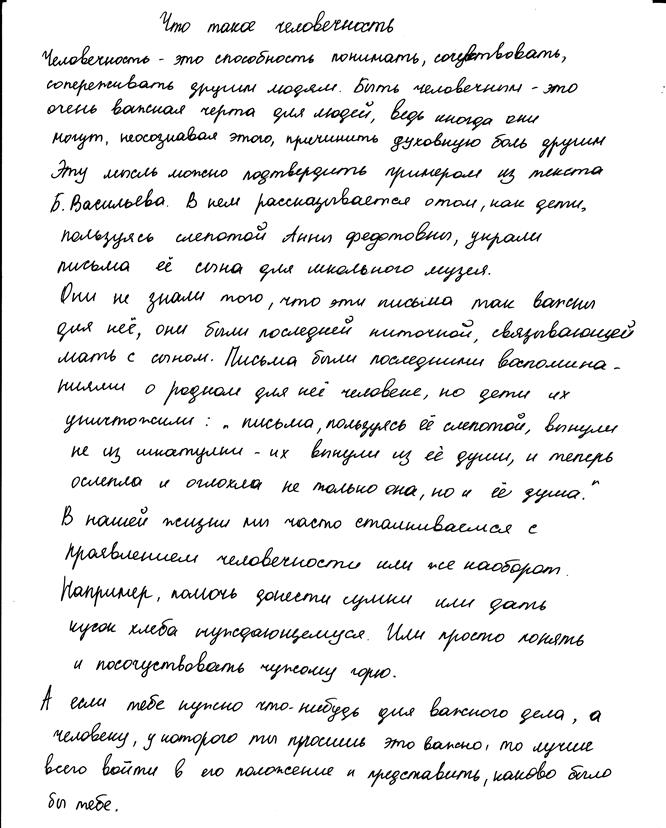 Что такое человечность
Человечность - это способность понимать, сочувствовать,
сопереживать другим людям. Быть человечным - это
очень важная черта для людей, ведь иногда они
могут, неосознавая этого, причинить духовную боль другим
Эту мысль можно подтвердить примером из текста
Б. Васильева. В нем рассказывается о том, как дети,
пользуясь слепотой Анны Федотовны, украли
письма её сына для школьного музея.
Они не знали того, что эти письма так важны
для неё, они были последней ниточкой, связывающей
мать с сыном. Письма были последними воспомина-
ниями о родном для неё человеке, но дети их
уничтожили: „ письма, пользуясь её слепотой, вынули
не из шкатулки - их вынули из её души, и теперь
ослепла и оглохла не только она, но и её душа."
В нашей жизни мы часто сталкиваемся с
проявлением человечности или же наоборот.
Например, помочь донести сумки или дать
кусок хлеба нуждающемуся. Или просто понять
и посочуствовать чужому горю.
А если тебе нужно что-нибудь для важного дела, а
человеку, у которого ты просишь это важно, то лучше
всего войти в его положение и представить, каково было
бы тебе.